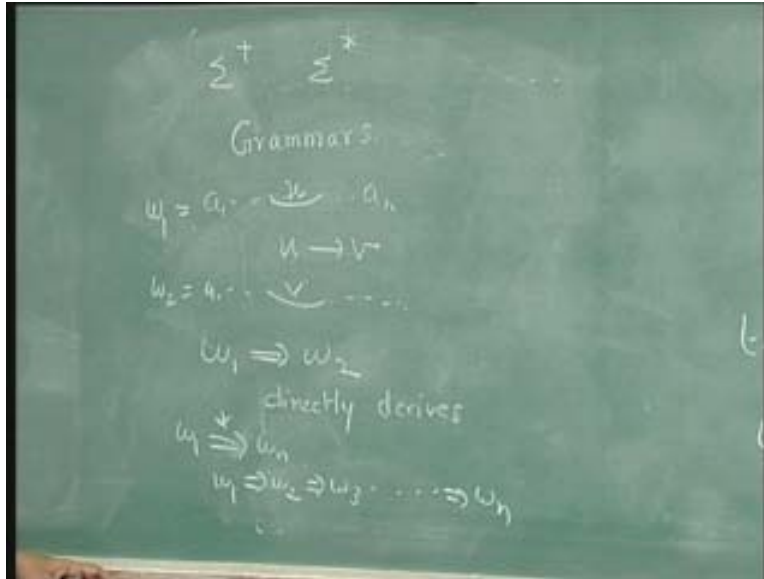 Σ⁺ Σ*
Grammars.
w₁ = a₁ .. u .. aₙ
u → v
w₂ = a₁ ... v .....
w₁ ⇒ w₂
directly derives
w₁ ⇒* wₙ
w₁ ⇒ w₂ ⇒ w₃ ..... ⇒ wₙ